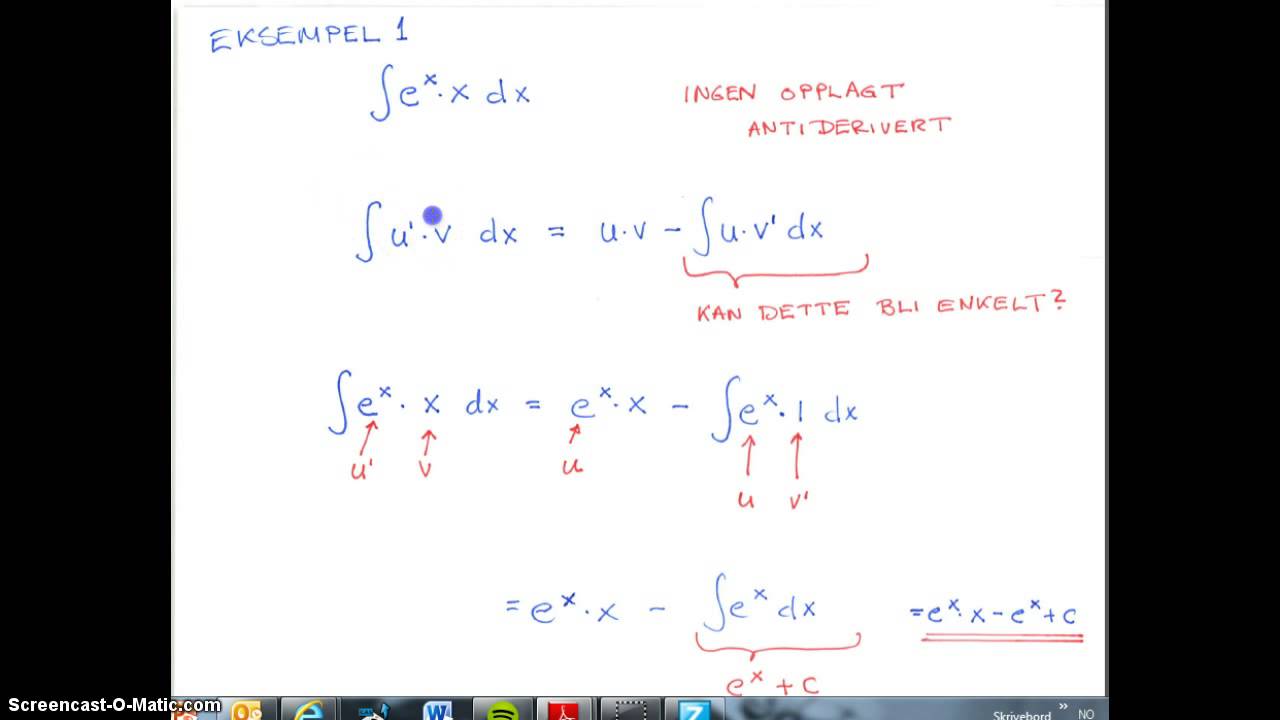 EKSEMPEL 1
∫e^x · x dx
INGEN OPPLAGT
ANTIDERIVERT
∫u'·v dx = u·v − ∫u·v' dx
KAN DETTE BLI ENKELT?
∫e^x · x dx = e^x · x − ∫e^x · 1 dx
u' v u
u v'
= e^x · x − ∫e^x dx = e^x · x − e^x + c
e^x + c
Screencast-O-Matic.com
Skrivebord » NO